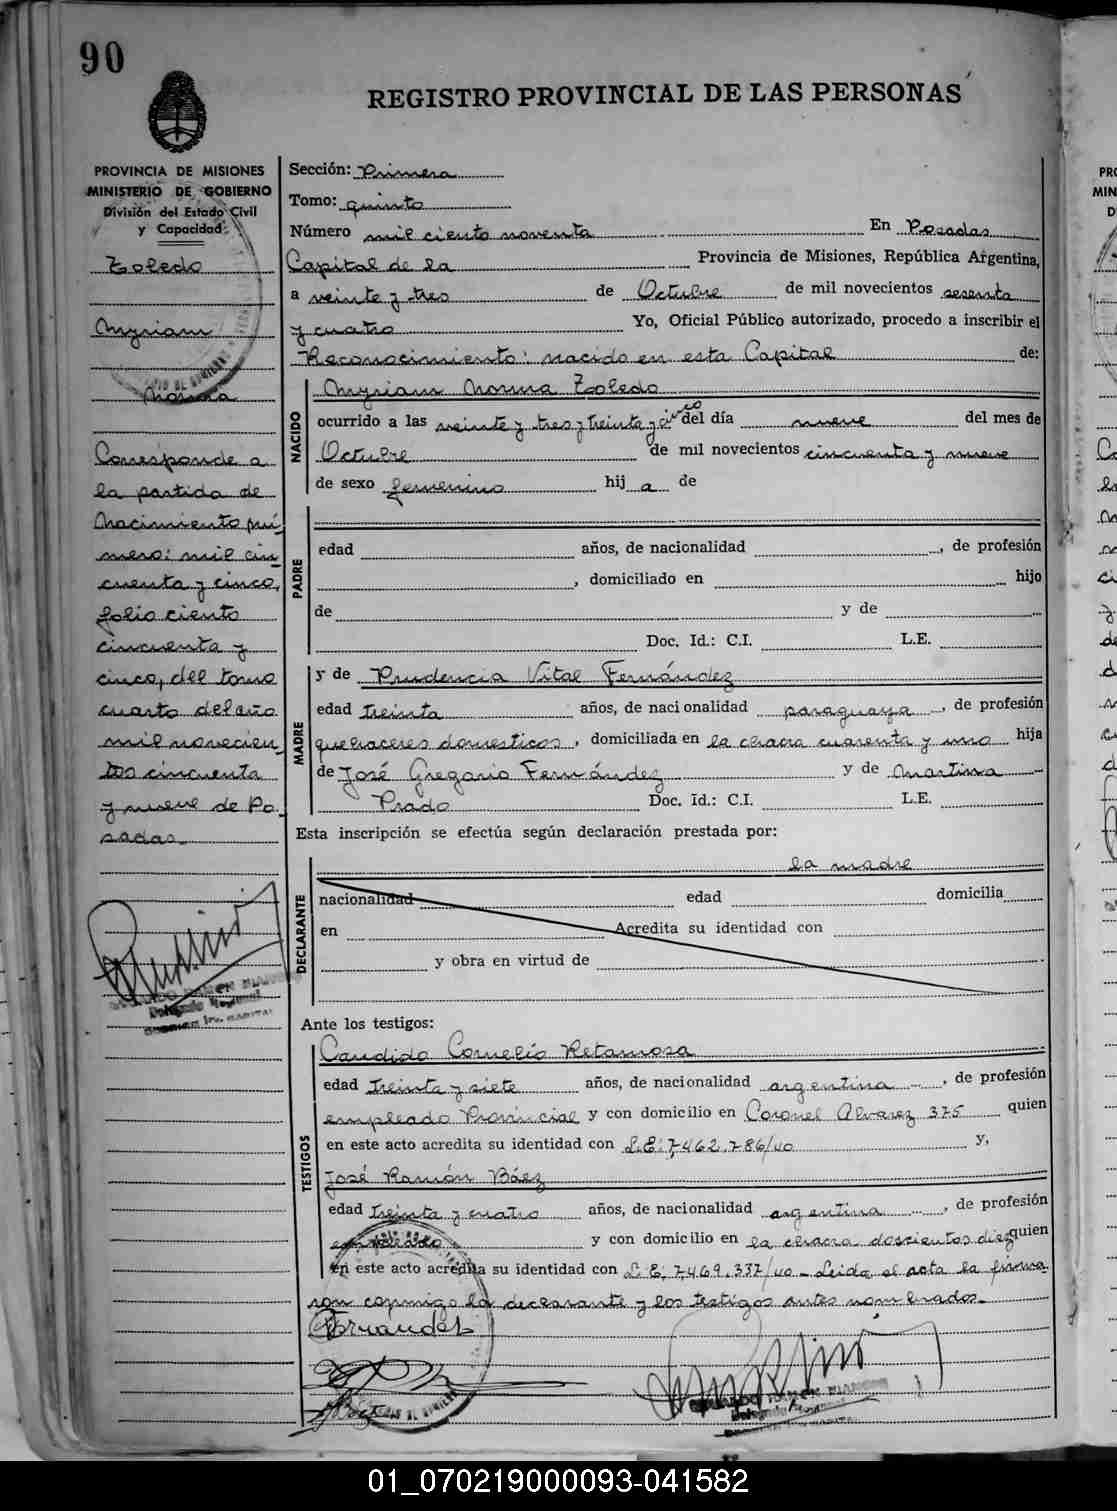 90
REGISTRO PROVINCIAL DE LAS PERSONAS
PROVINCIA DE MISIONES
MINISTERIO DE GOBIERNO
División del Estado Civil
y Capacidad
Toledo
Myriam
Norma
Corresponde a
la partida de
Nacimiento nú
mero: mil cin
cuenta y cinco,
folio ciento
cincuenta y
cinco, del tomo
cuarto del año
mil novecien
tos cincuenta
y nueve de Po-
sadas.
Sección: Primera
Tomo: quinto
Número mil ciento noventa En Posadas
Capital de la Provincia de Misiones, República Argentina,
a veinte y tres de Octubre de mil novecientos sesenta
y cuatro Yo, Oficial Público autorizado, procedo a inscribir el
Reconocimiento: nacido en esta Capital de:
NACIDO
Myriam Norma Toledo
ocurrido a las veinte y tres y treinta y cinco del día nueve del mes de
Octubre de mil novecientos cincuenta y nueve
de sexo femenino hij a de
PADRE
edad años, de nacionalidad , de profesión
, domiciliado en hijo
de y de
Doc. Id.: C.I. L.E.
MADRE
y de Prudencia Vital Fernández
edad treinta años, de nacionalidad paraguaya , de profesión
quehaceres domesticos , domiciliada en la chacra cuarenta y uno hija
de José Gregorio Fernández y de Martina
Prado Doc. Id.: C.I. L.E.
Esta inscripción se efectúa según declaración prestada por:
la madre
DECLARANTE
nacionalidad edad domicilia
en Acredita su identidad con
y obra en virtud de
Ante los testigos:
TESTIGOS
Candido Cornelio Retamosa
edad treinta y siete años, de nacionalidad argentina , de profesión
empleado Provincial y con domicilio en Coronel Alvarez 375 quien
en este acto acredita su identidad con L.E: 7,462.786/40 y,
José Ramón Báez
edad treinta y cuatro años, de nacionalidad argentina , de profesión
empleado y con domicilio en la chacra doscientos diez quien
en este acto acredita su identidad con L.E; 7,469.337/40 - Leida el acta la firma
ron conmigo la declarante y los testigos antes nombrados.-
Fernandez
Báez
01_070219000093-041582